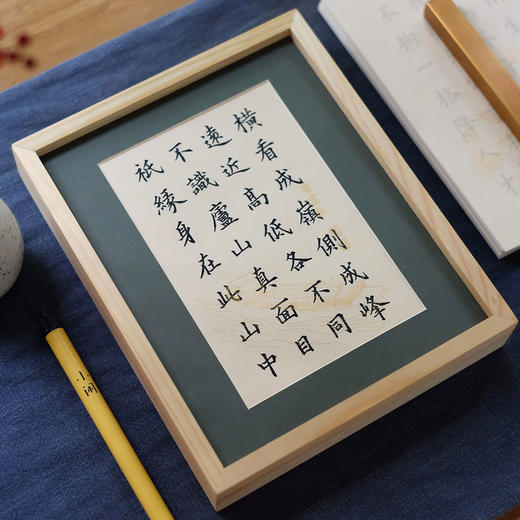 橫看成嶺側成峰
遠近高低各不同
不識廬山真面目
祇緣身在此山中
不拘一格降人才
小